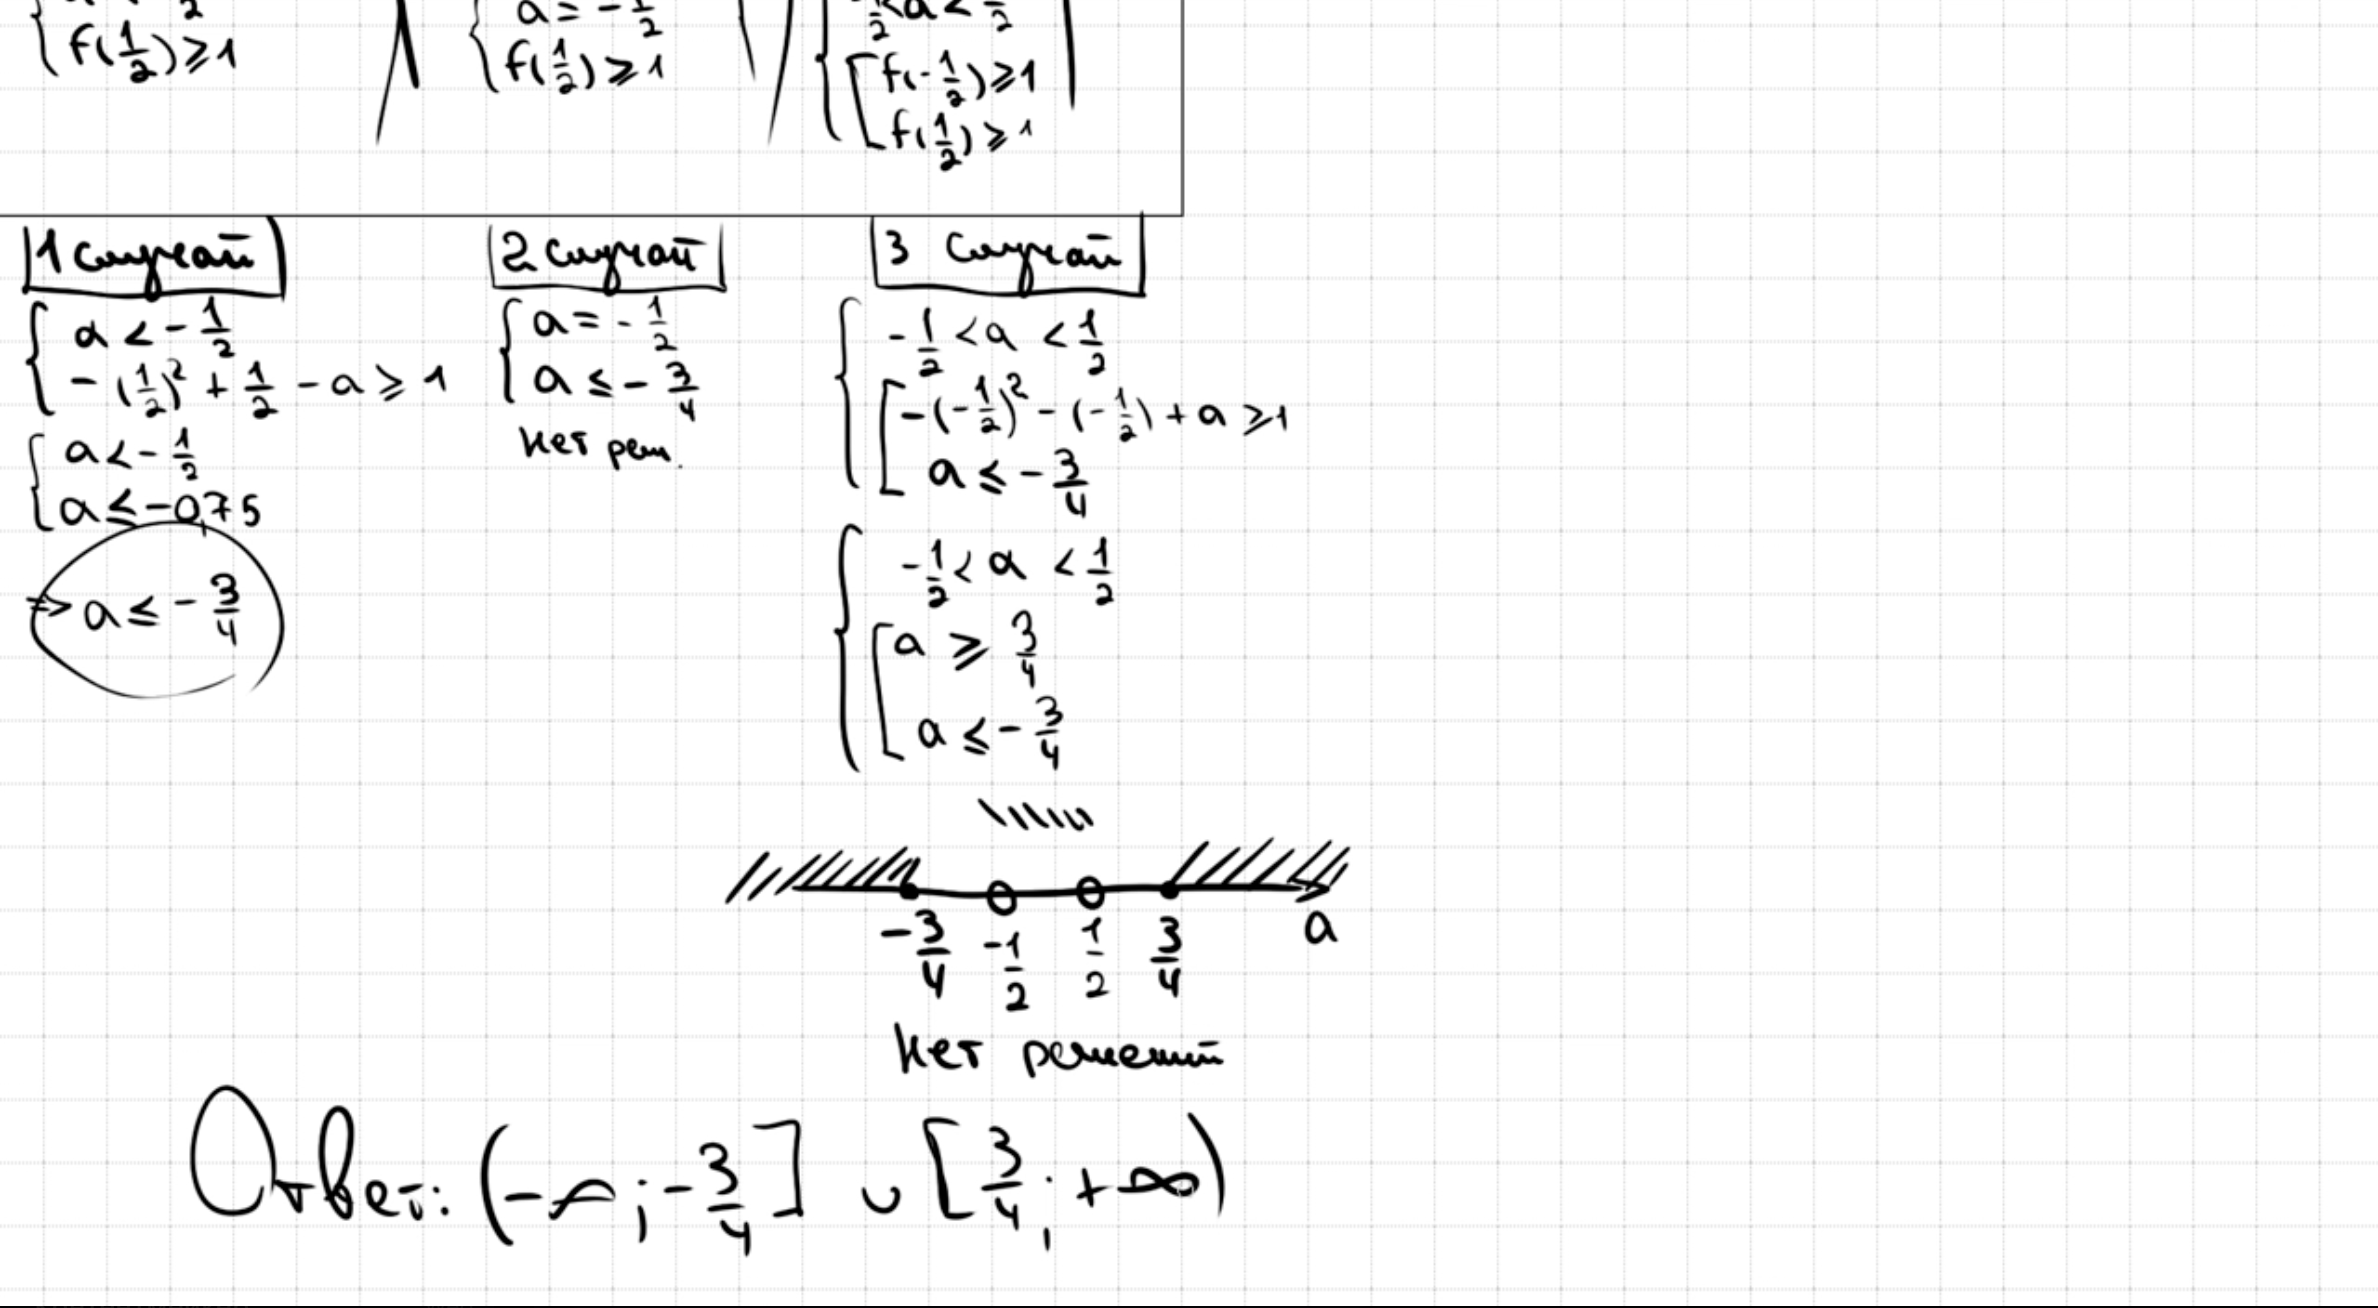 f(1/2) ≥ 1
a = - 1/2
f(1/2) ≥ 1
f(-1/2) ≥ 1
f(1/2) ≥ 1
1 случай
a < - 1/2
- (1/2)² + 1/2 - a ≥ 1
a < - 1/2
a ≤ - 0,75
=> a ≤ - 3/4
2 случай
a = - 1/2
a ≤ - 3/4
нет реш.
3 случай
- 1/2 < a < 1/2
- (- 1/2)² - (- 1/2) + a ≥ 1
a ≤ - 3/4
- 1/2 < a < 1/2
a ≥ 3/4
a ≤ - 3/4
- 3/4 - 1/2 1/2 3/4 a
нет решений
Ответ: (-∞; - 3/4] ∪ [3/4; +∞)